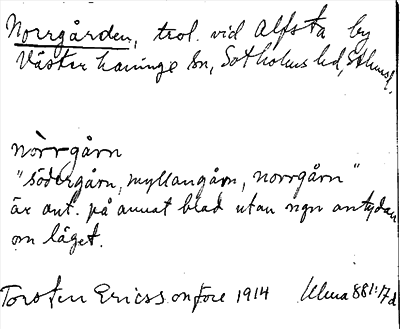 Norrgården, trol. vid Alfsta by
Västerhaninge sn, Sotholms hd, Sthmsl.
nòrrgårn
"södergårn, myllangårn, norrgårn"
är ant. på annat blad utan ngn antydan
om läget.
Torsten Ericsson före 1914 Ulma 881:17d